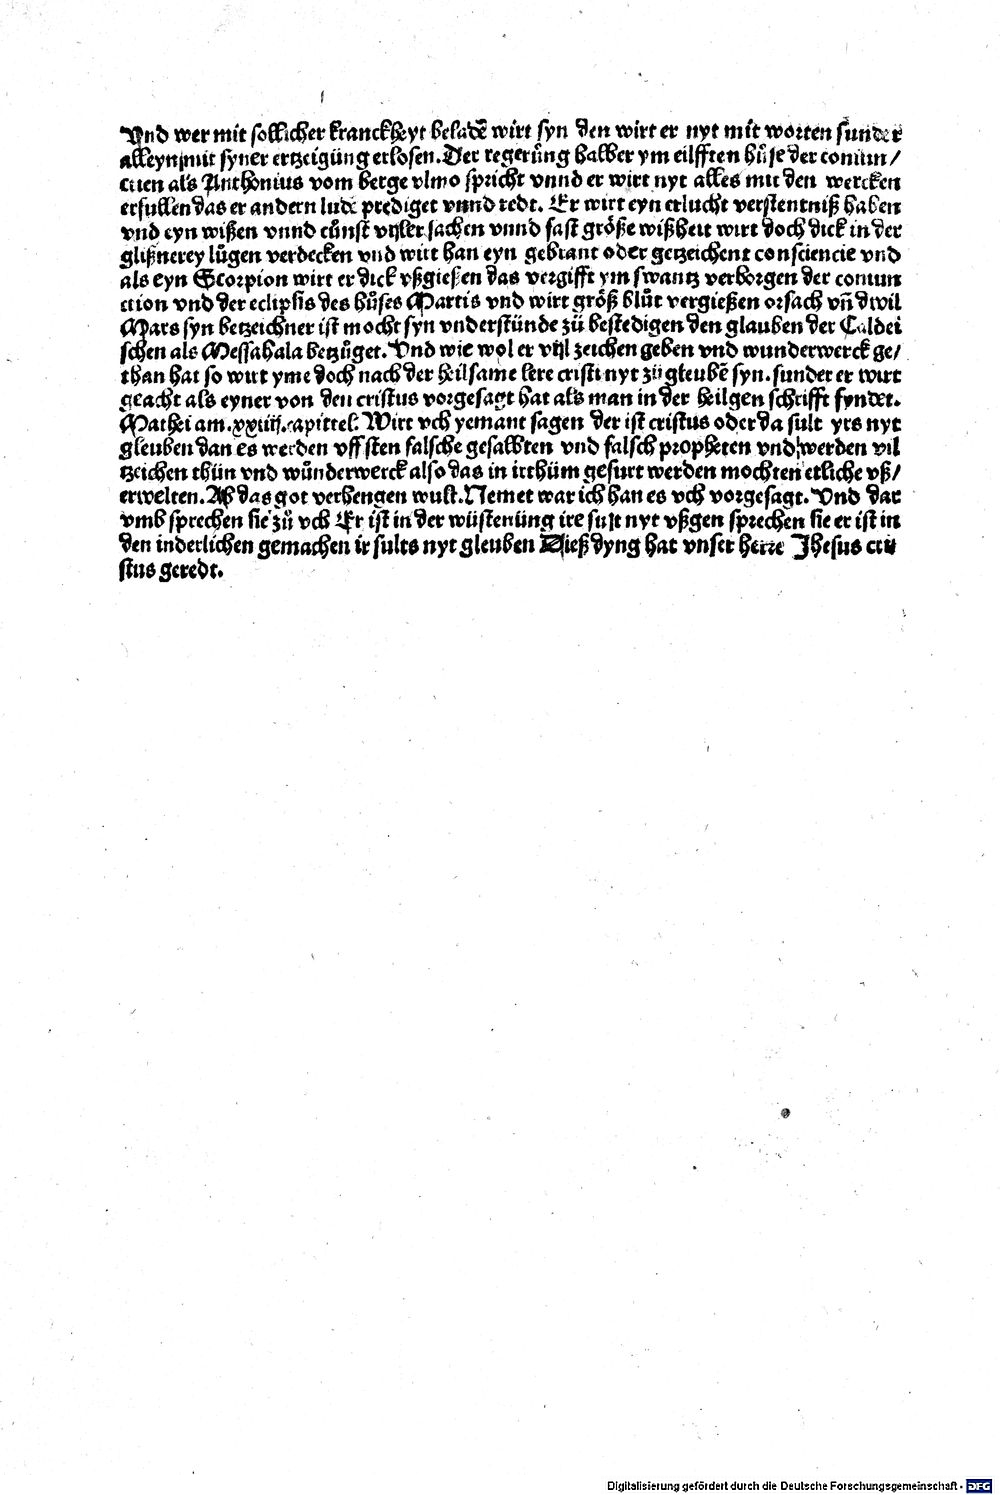 Vnd wer mit sollicher kranckheyt beladē wirt syn den wirt er nyt mit worten sunder
alleyn mit syner ertzeigüng erlosen. Der regerůng halber ym eilfften hůse der coniun/
ctien als Anthonius vom berge vlmo spricht vnnd er wirt nyt alles mit den wercken
erfullen das er andern lude prediget vnnd redt. Er wirt eyn erlucht verstentniß haben
vnd eyn wißen vnnd cůnst vyler sachen vnnd fast größe wißheit wirt doch dick in der
glißnerey lůgen verdecken vnd wirt han eyn gebrant oder getzeichent consciencie vnd
als eyn Scorpion wirt er dick vßgießen das vergifft ym swantz verborgen der coniun
ction vnd der eclipsis des hůses Martis vnd wirt größ blůt vergießen orsach vn̄ dwil
Mars syn betzeichner ist mocht syn vnderstünde zü bestedigen den glauben der Caldei
schen als Messahala betzůget. Vnd wie wol er vyl zeichen geben vnd wunderwerck ge/
than hat so wirt yme doch nach der heilsame lere cristi nyt zü gleubē syn. sunder er wirt
geacht als eyner von den cristus vorgesagt hat als man in der heilgen schrifft fyndet.
Mathei am .xxiiij. capittel. Wirt vch yemant sagen der ist cristus oder da sult yrs nyt
gleuben dan es werden vff sten falsche gesalbten vnd falsch propheten vnd werden vil
tzeichen thün vnd wůnderwerck also das in irthüm gefurt werden mochten etliche vß/
erwelten. Ab das got verhengen wult. Nemet war ich han es vch vorgesagt. Vnd dar
vmb sprechen sie zů vch Er ist in der wüstenüng ire sult nyt vßgen sprechen sie er ist in
den inderlichen gemachen ir sults nyt gleuben Dieß dyng hat vnser herre Jhesus cri
stus geredt.
Digitalisierung gefördert durch die Deutsche Forschungsgemeinschaft - DFG